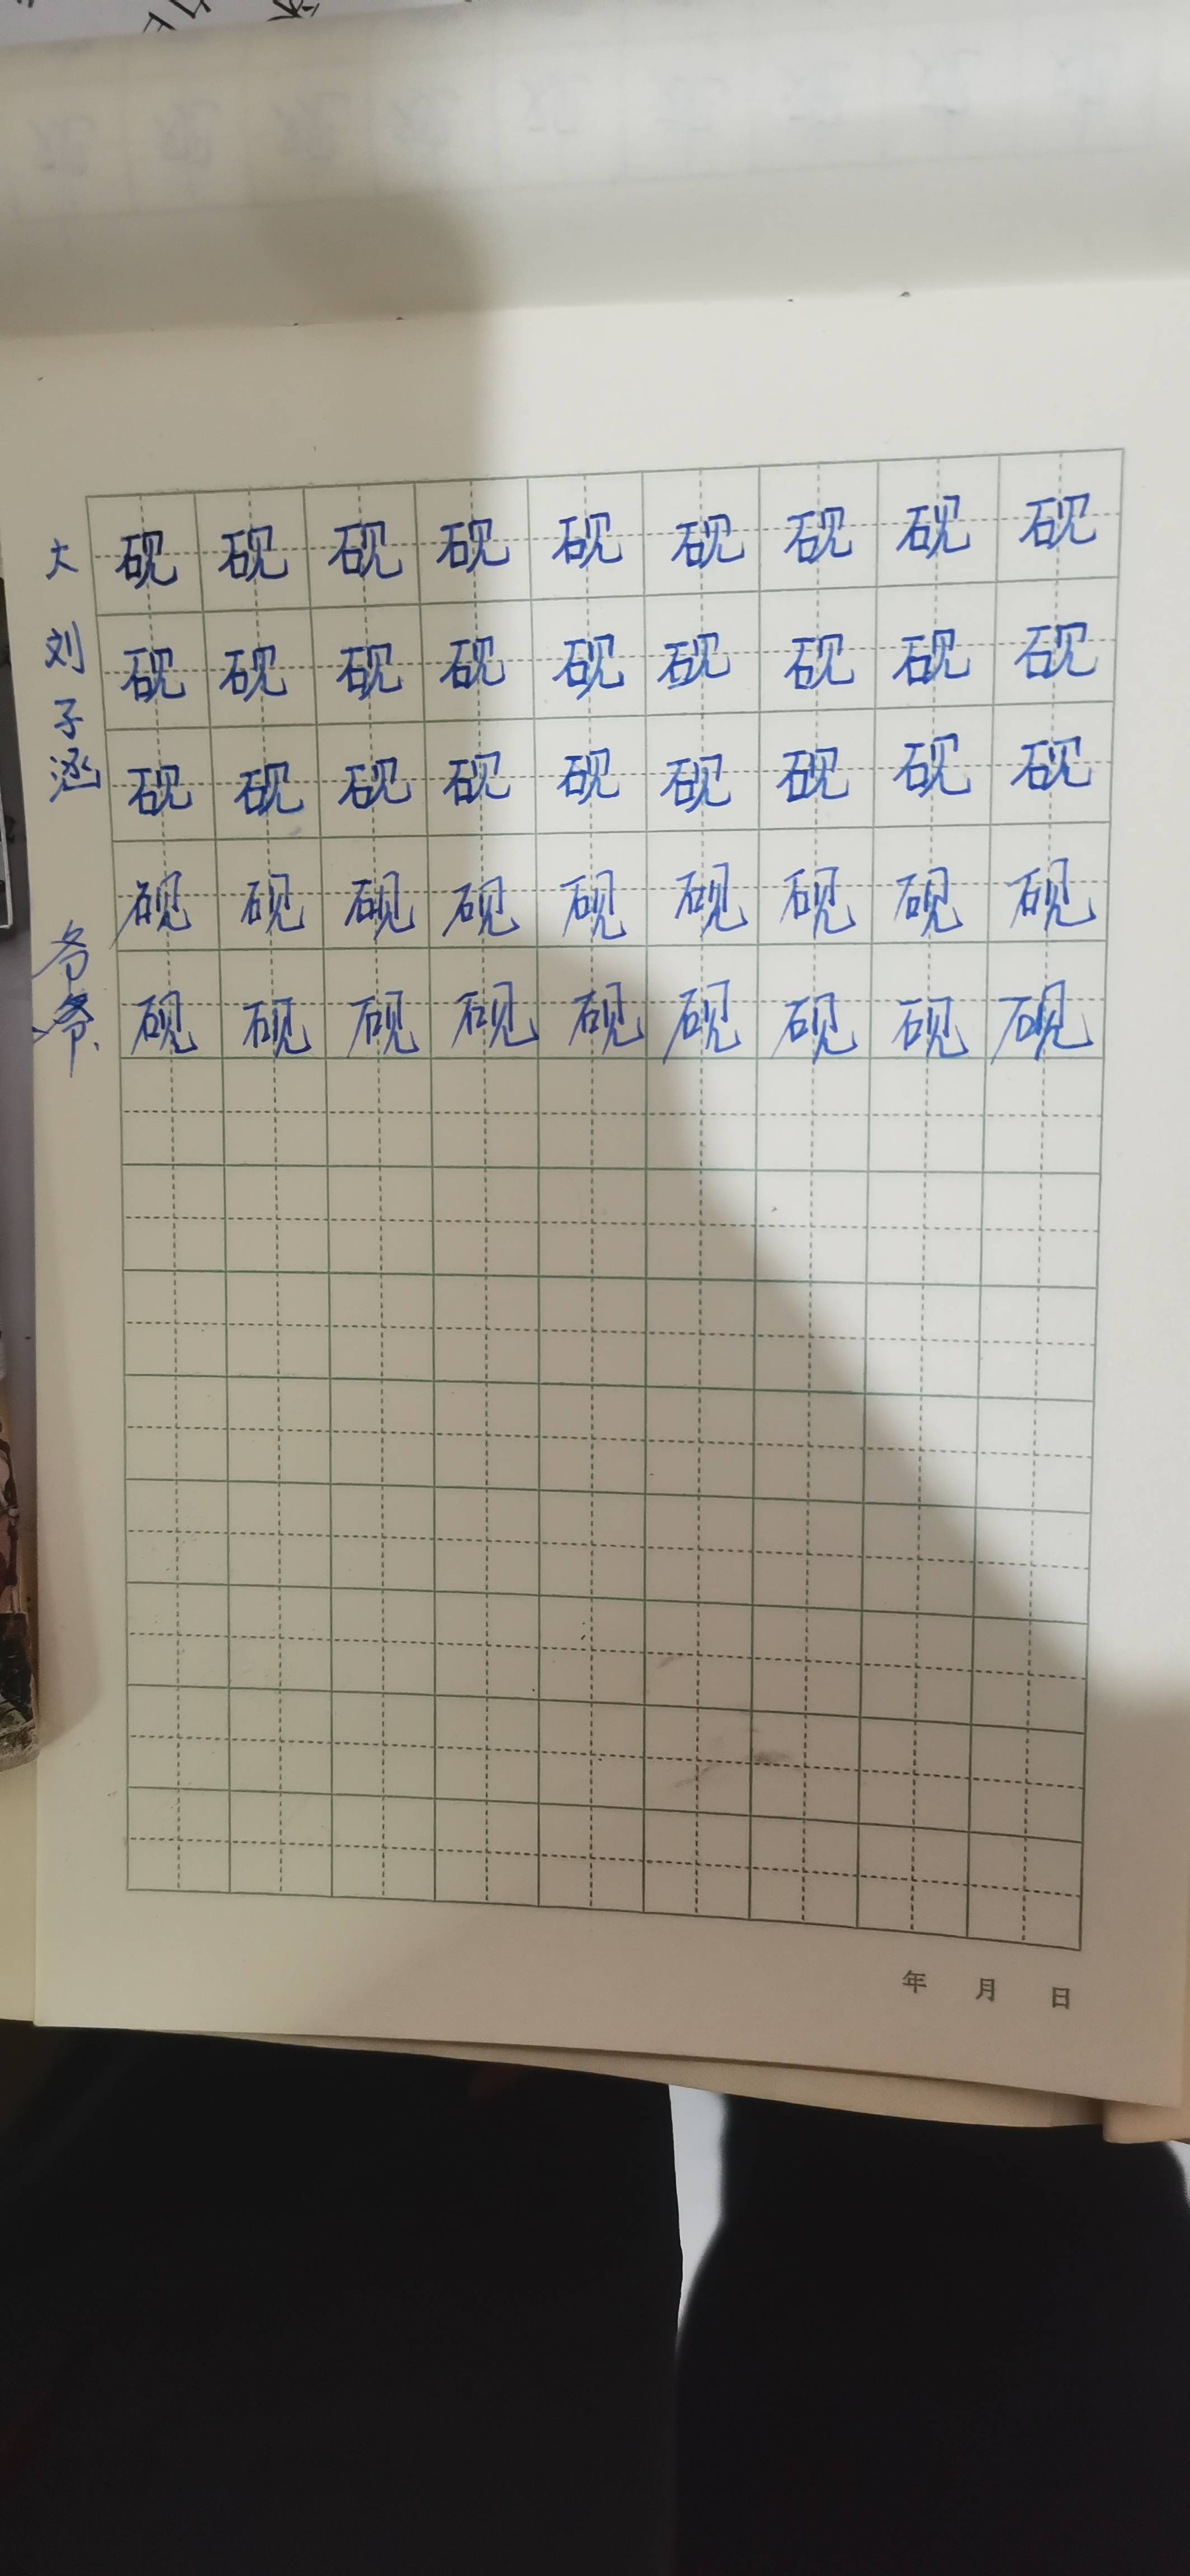 大
刘子涵
爷爷
砚砚砚砚砚砚砚砚砚
砚砚砚砚砚砚砚砚砚
砚砚砚砚砚砚砚砚砚
砚砚砚砚砚砚砚砚砚
砚砚砚砚砚砚砚砚砚
年 月 日